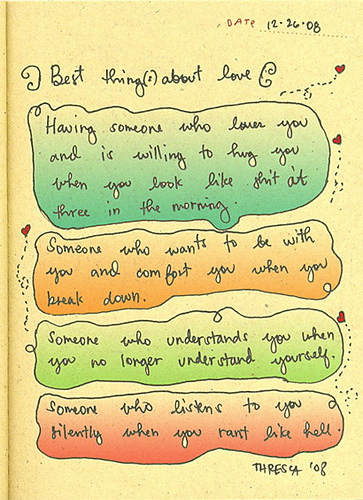 DATE 12-26-08
Best thing(s) about love
Having someone who loves you
and is willing to hug you
when you look like shit at
three in the morning.
Someone who wants to be with
you and comfort you when you
break down.
Someone who understands you when
you no longer understand yourself.
Someone who listens to you
silently when you rant like hell.
THRESCA '08